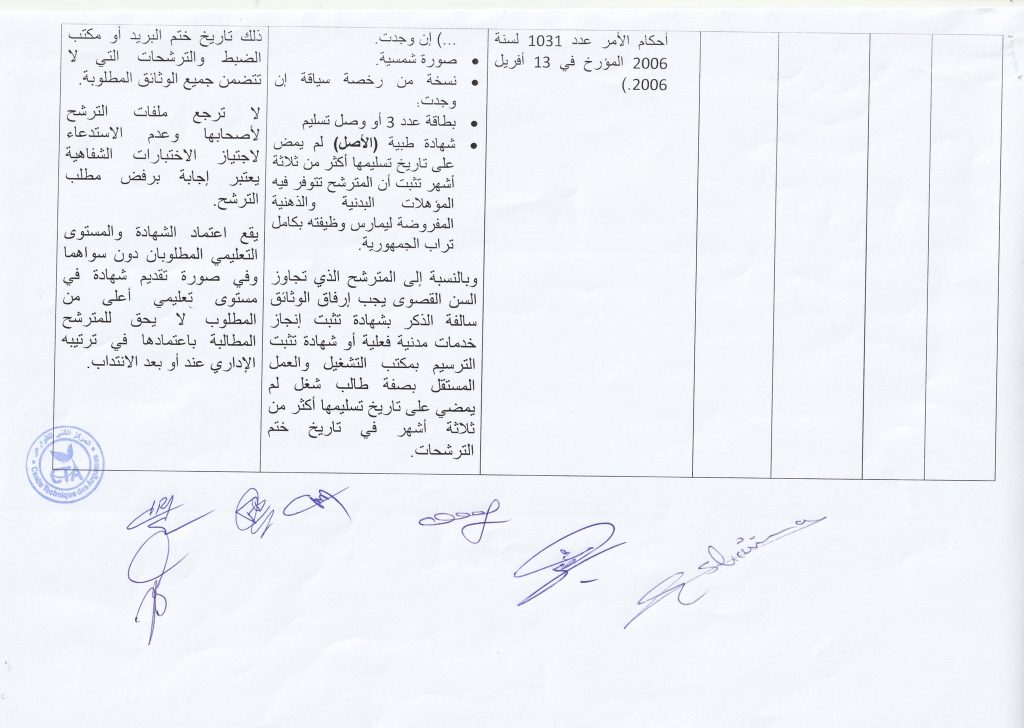 أحكام الأمر عدد 1031 لسنة
2006 المؤرخ في 13 أفريل
2006.)
...) إن وجدت.
• صورة شمسية.
• نسخة من رخصة سياقة إن
وجدت:
• بطاقة عدد 3 أو وصل تسليم
• شهادة طبية (الأصل) لم يمض
على تاريخ تسليمها أكثر من ثلاثة
أشهر تثبت أن المترشح تتوفر فيه
المؤهلات البدنية والذهنية
المفروضة ليمارس وظيفته بكامل
تراب الجمهورية.
وبالنسبة إلى المترشح الذي تجاوز
السن القصوى يجب إرفاق الوثائق
سالفة الذكر بشهادة تثبت إنجاز
خدمات مدنية فعلية أو شهادة تثبت
الترسيم بمكتب التشغيل والعمل
المستقل بصفة طالب شغل لم
يمضي على تاريخ تسليمها أكثر من
ثلاثة أشهر في تاريخ ختم
الترشحات.
ذلك تاريخ ختم البريد أو مكتب
الضبط والترشحات التي لا
تتضمن جميع الوثائق المطلوبة.
لا ترجع ملفات الترشح
لأصحابها وعدم الاستدعاء
لاجتياز الاختبارات الشفاهية
يعتبر إجابة برفض مطلب
الترشح.
يقع اعتماد الشهادة والمستوى
التعليمي المطلوبان دون سواهما
وفي صورة تقديم شهادة في
مستوى تعليمي أعلى من
المطلوب لا يحق للمترشح
المطالبة باعتمادها في ترتيبه
الإداري عند أو بعد الانتداب.
المركز الفني
CTA
Centre Technique des Agrumes